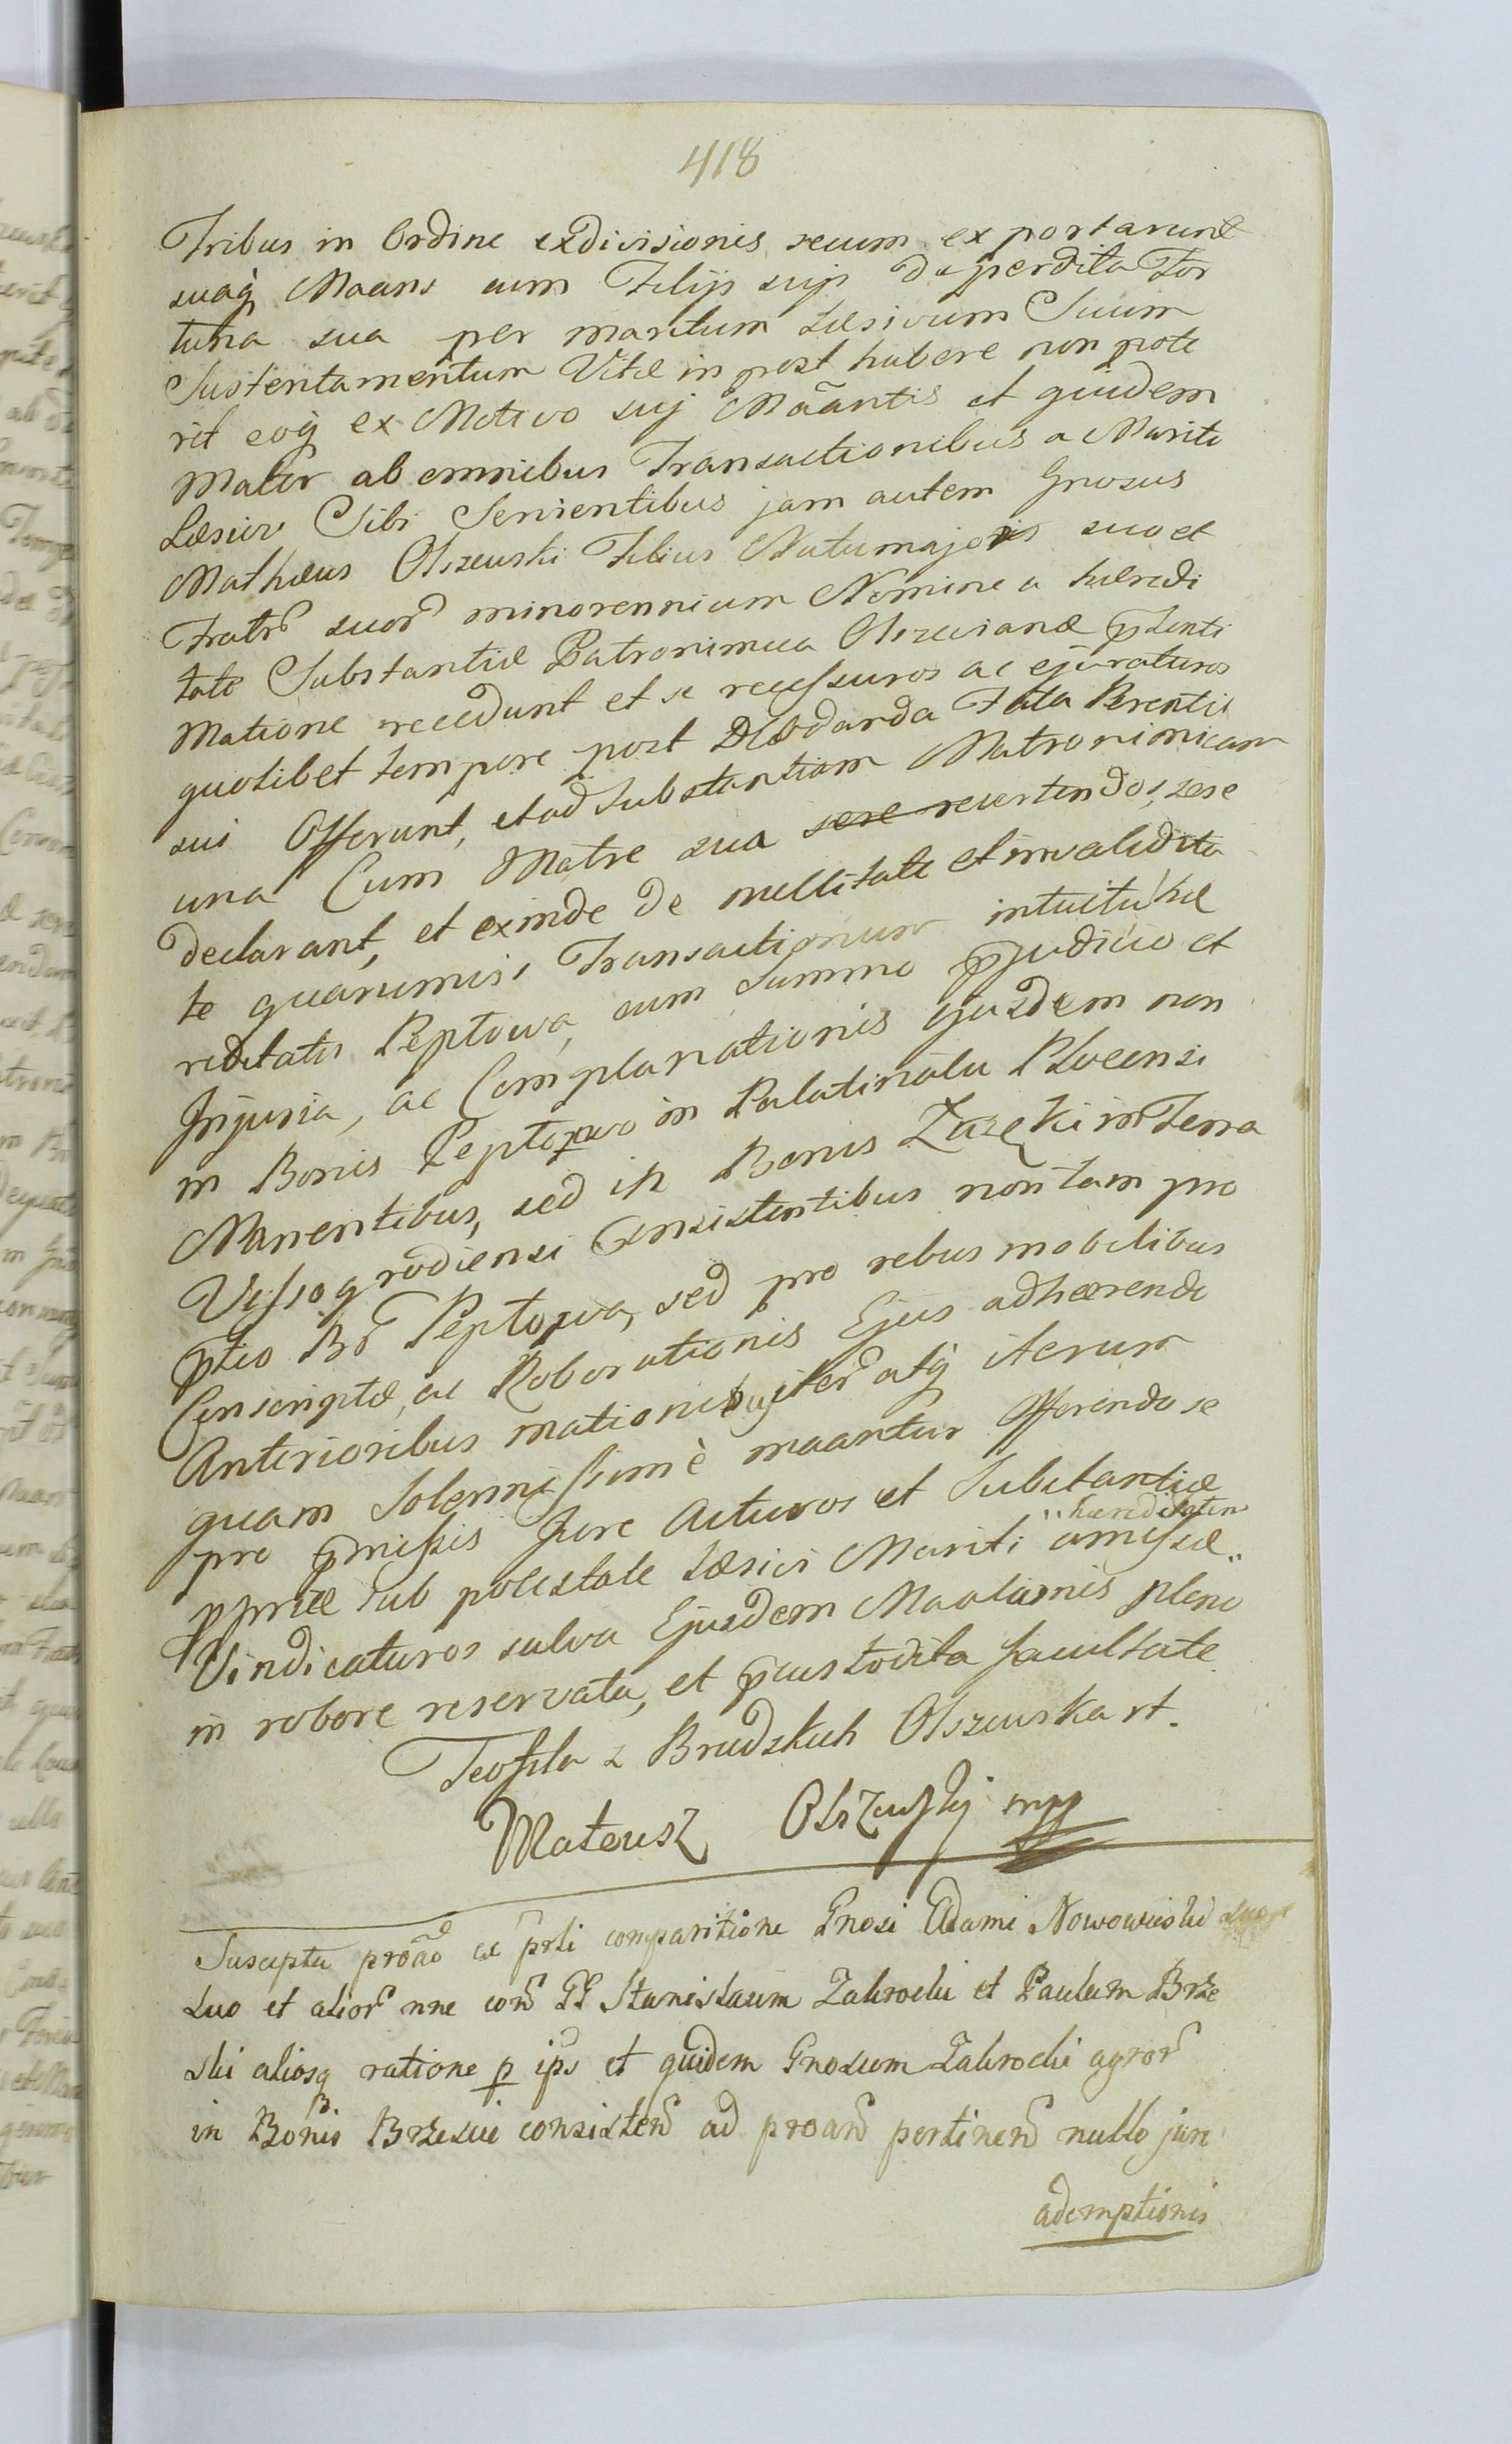 418
Tribus in Ordine exdivisionis secum exportarunt
suaq̃ Maans cum Filijs suis deperdita For
tuna sua per maritum Læsivum Suum
Sustentamentum Vitæ in post habere non pote
rit eoq̃ ex Motivo suj Mãantis et quidem
Mater ab omnibus Transactionibus a Marito
Læsivo Sibi Servientibus jam autem Gnosus
Mathæus Olszewski Filius Natu majoris suo et
Fratr̃ suor̃ minorennium Nomine a hæredi
tate Substantiæ Patronimica Olszevianæ p̃senti
Matione recedunt et se recessuros ac ejuraturos
quolibet tempore post Elodarda Fata Parentis
sui Offerunt, et ad Substantiam Matronimicam
una Cum Matre sua sese revertendos, sese
declarant, et exinde de nullitate et invalidita
te quarumvis Transactionum intuitu hæ
reditatis Peptowa, cum Summo p̃judicio et
Injuria, ac Complanationis ejusdem non
in Bonis Peptowo in Palatinatu Plocensi
Manentibus, sed in Bonis Zuzęki in Terra
Vyssogrodiensi Consistentibus non tam pro
p̃tio Bõ Peptowa, sed pro rebus mobilibus
Conscriptæ, ac Roborationis Ejus adhærendo
Anterioribus mationibus iter̃ atq̃ iterum
quam Solennissimè maantur Offerendo se
pro p̃missis Jure Acturos et Substantiæ
ppriæ sub potestate Læsivi Mariti amissæ
hæreditatem
Vindicaturos salva Ejusdem Maationis pleno
in robore reservata, et p̃custodita facultate
Teofila z Brudzkich Olszewska st.
Mateusz Olszewskj mp
Suscepta proãõ ac p̃rli comparitione Gnosi Adami Nowowieski
suo et alior̃ nne con̄ GG Stanislaum Zakrocki et Paulum Brze
ski aliosq ratione p ips et quidem Gnosum Zakrocki agror̃
in Bonis Brzesci consisten̄ ad proan̄ pertinen̄ nullo jure
ademptionis